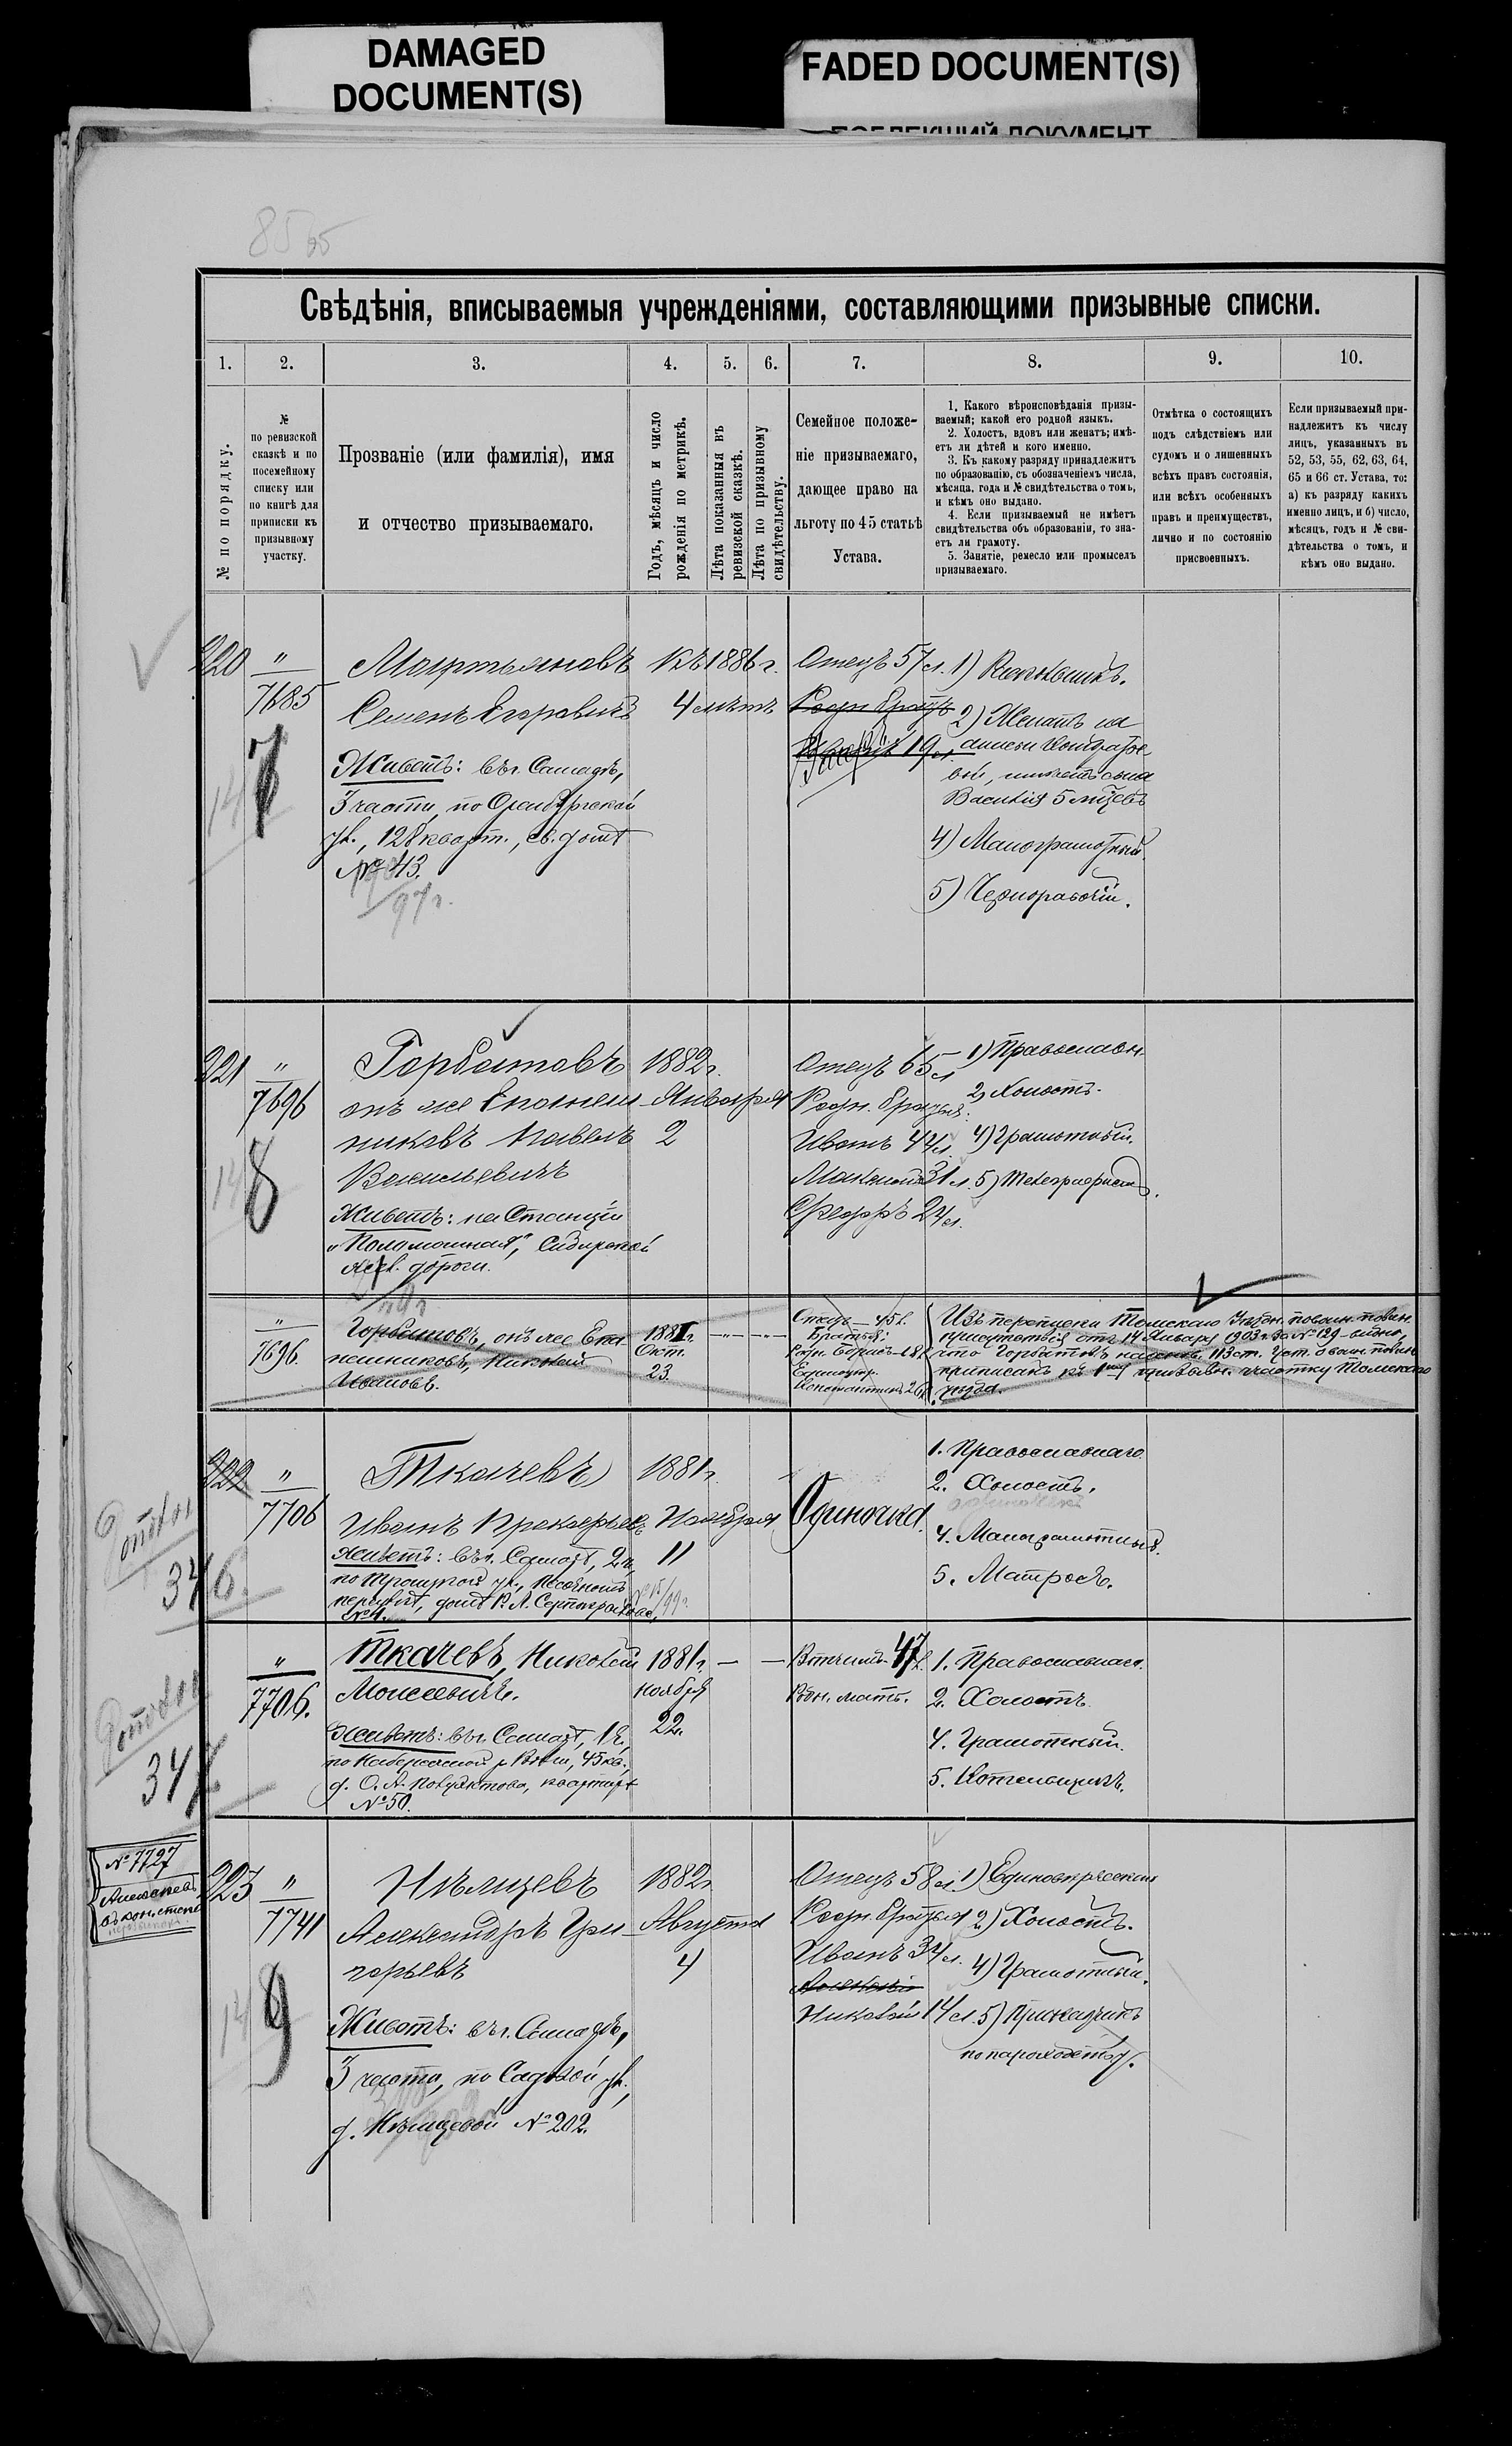 DAMAGED
DOCUMENT(S)
FADED DOCUMENT(S)
ПОБЛЕКШИЙ ДОКУМЕНТ
85
Свѣдѣнія, вписываемыя учрежденіями, составляющими призывные списки.
1. 2. 3. 4. 5. 6. 7. 8. 9. 10.
№ по порядку.
№
по ревизской
сказкѣ и по
посемейному
списку или
по книгѣ для
приписки къ
призывному
участку.
Прозваніе (или фамилія), имя
и отчество призываемаго.
Годъ, мѣсяцъ и число
рожденія по метрикѣ.
Лѣта показанныя въ
ревизской сказкѣ.
Лѣта по призывному
свидѣтельству.
Семейное положе-
ніе призываемаго,
дающее право на
льготу по 45 статьѣ
Устава.
1. Какого вѣроисповѣданія призы-
ваемый; какой его родной языкъ.
2. Холостъ, вдовъ или женатъ; имѣ-
етъ ли дѣтей и кого именно.
3. Къ какому разряду принадлежитъ
по образованію, съ обозначеніемъ числа,
мѣсяца, года и № свидѣтельства о томъ,
и кѣмъ оно выдано.
4. Если призываемый не имѣетъ
свидѣтельства объ образованіи, то зна-
етъ ли грамоту.
5. Занятіе, ремесло или промыселъ
призываемаго.
Отмѣтка о состоящихъ
подъ слѣдствіемъ или
судомъ и о лишенныхъ
всѣхъ правъ состоянія,
или всѣхъ особенныхъ
правъ и преимуществъ,
лично и по состоянію
присвоенныхъ.
Если призываемый при-
надлежитъ къ числу
лицъ, указанныхъ въ
52, 53, 55, 62, 63, 64,
65 и 66 ст. Устава, то:
а) къ разряду какихъ
именно лицъ, и б) число,
мѣсяцъ, годъ и № сви-
дѣтельства о томъ, и
кѣмъ оно выдано.
220
"
7685
147
Мартьяновъ
Семенъ Егоровичъ
Живетъ: въ г. Самарѣ,
3 части, по Оренбургской
ул., 128 кварт., св. домъ
№ 43.
97 г.
Къ 1886 г.
4 лѣтъ
Отецъ 57 л.
Родн. братъ
19 л.
1)
2) Женатъ на
имѣетъ сына
Василія 5 мѣсяцевъ
4) Малограмотный.
5) Чернорабочій.
221
"
7696
148
Горбатовъ
онъ же Епанеш-
никовъ Павелъ
Васильевичъ
Живетъ: на Станціи
"Поломошная", Сибирской
жел. дороги.
1882 г.
Января
2
Отецъ 65 л
Родн. братья:
Иванъ 44 л.
31 л.
Федоръ 24 л.
1) Православн.
2) Холостъ.
4) Грамотный.
5) Телеграфистъ.
"
7696.
Горбатовъ, онъ же Епа-
нешниковъ, Николай
Ивановъ.
1881 г.
Окт.
23.
Отецъ — 45 л.
Братья:
Константинъ
Изъ переписки Томскаго Уѣздн. по воин. повин.
присутствія отъ 14 Января 1903 г. за № 129 — видно,
что Горбатовъ на основ. 113 ст. Уст. о воин. повин.
приписанъ къ 1му призывн. участку Томскаго
уѣзда.
222
"
7706
Готовъ
346.
Ткачевъ
Иванъ Прокофьевъ
Живетъ: въ г. Самарѣ, 2 ч.,
по Троицкой ул.,
№ 4.
1881 г.
Ноября
11
Одиночка.
1. Православнаго
2. Холостъ.
4. Малограмотный.
5. Матросъ.
"
7706.
Готовъ
347
Ткачевъ, Николай
Моисеевичъ.
Живетъ: въ г. Самарѣ, 1 ч.,
по Набережной р. Волги, 45 кв.,
кварт.
№ 50.
1881 г. — —
Ноября
22.
Вотчимъ 47 л.
Родн. мать.
1. Православнаго.
2. Холостъ.
4. Грамотный.
5. Котельщикъ.
№ 7727
Алексѣевъ
223
"
7741
149
Нѣмцевъ
Александръ Гри-
горьевъ
Живетъ: въ г. Самарѣ,
3 части, по Садовой ул.,
д. Нѣмцевой № 202.
1882 г.
Августа
4
Отецъ 58 л.
Родн. братья
Иванъ 34 л.
Николай 14 л.
1) Единовѣрческаго
2) Холостъ.
4) Грамотный.
5) Приказчикъ
по пароходству.